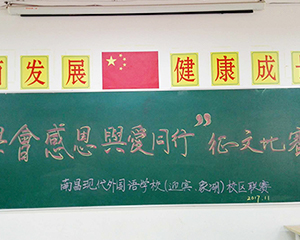 发展 健康成
會感恩與爱同行”征文比赛
南昌现代外国语学校(迎宾、象湖)校区联赛
2017.11